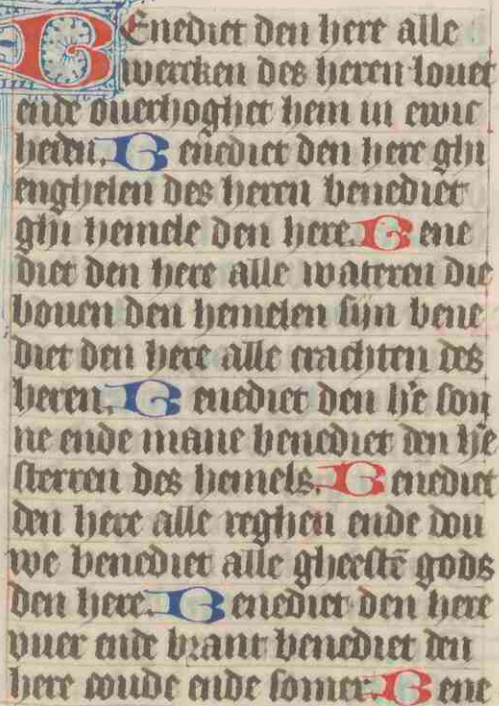 BEnedict den here alle
wercken des heren louet
ende ouerhoghet hem in ewic
heden. Benedict den here ghi
enghelen des heren benedict
ghi hemele den here. Bene
dict den here alle wateren die
bouen den hemelen sijn bene
dict den here alle crachten des
heren. Benedict den hē son
ne ende mane benedict den hē
sterren des hemels. Benedict
den here alle reghen ende dou
we benedict alle gheestē gods
den here. Benedict den here
vuer ende brant benedict den
here coude ende somer. Bene